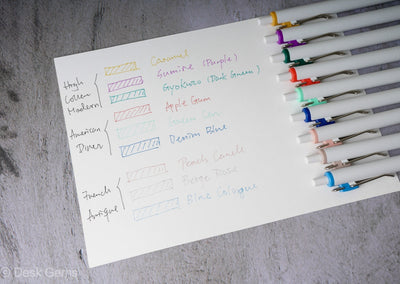 Caramel
High Collar Modern
Sumire (Purple)
Gyokuro (Dark Green)
Apple Gum
American Diner
Green Can
Denim Blue
Peach Candle
French Antique
Beige Dase
Blue Cologne
© Desk Gems